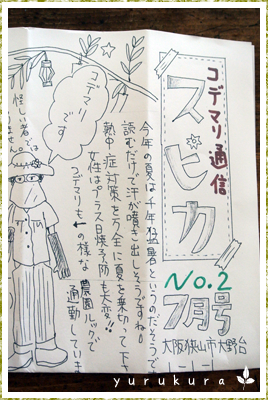 コデマリ通信
スピカ
No.2
7月号
大阪狭山市大野台
1-1-1
今年の夏は千年猛暑というのだそうで
読むだけで汗が噴き出しそうですね。
熱中症対策を万全に夏を乗切って下さ
女性はプラス日焼予防も大変!!
コデマリも←の様な農園ルックで
通勤していま
コデマリ
です
怪しい者では
ません。
yurukura